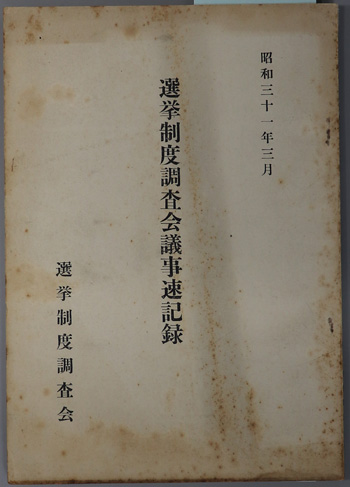 昭和三十一年三月
選挙制度調査会議事速記録
選挙制度調査会